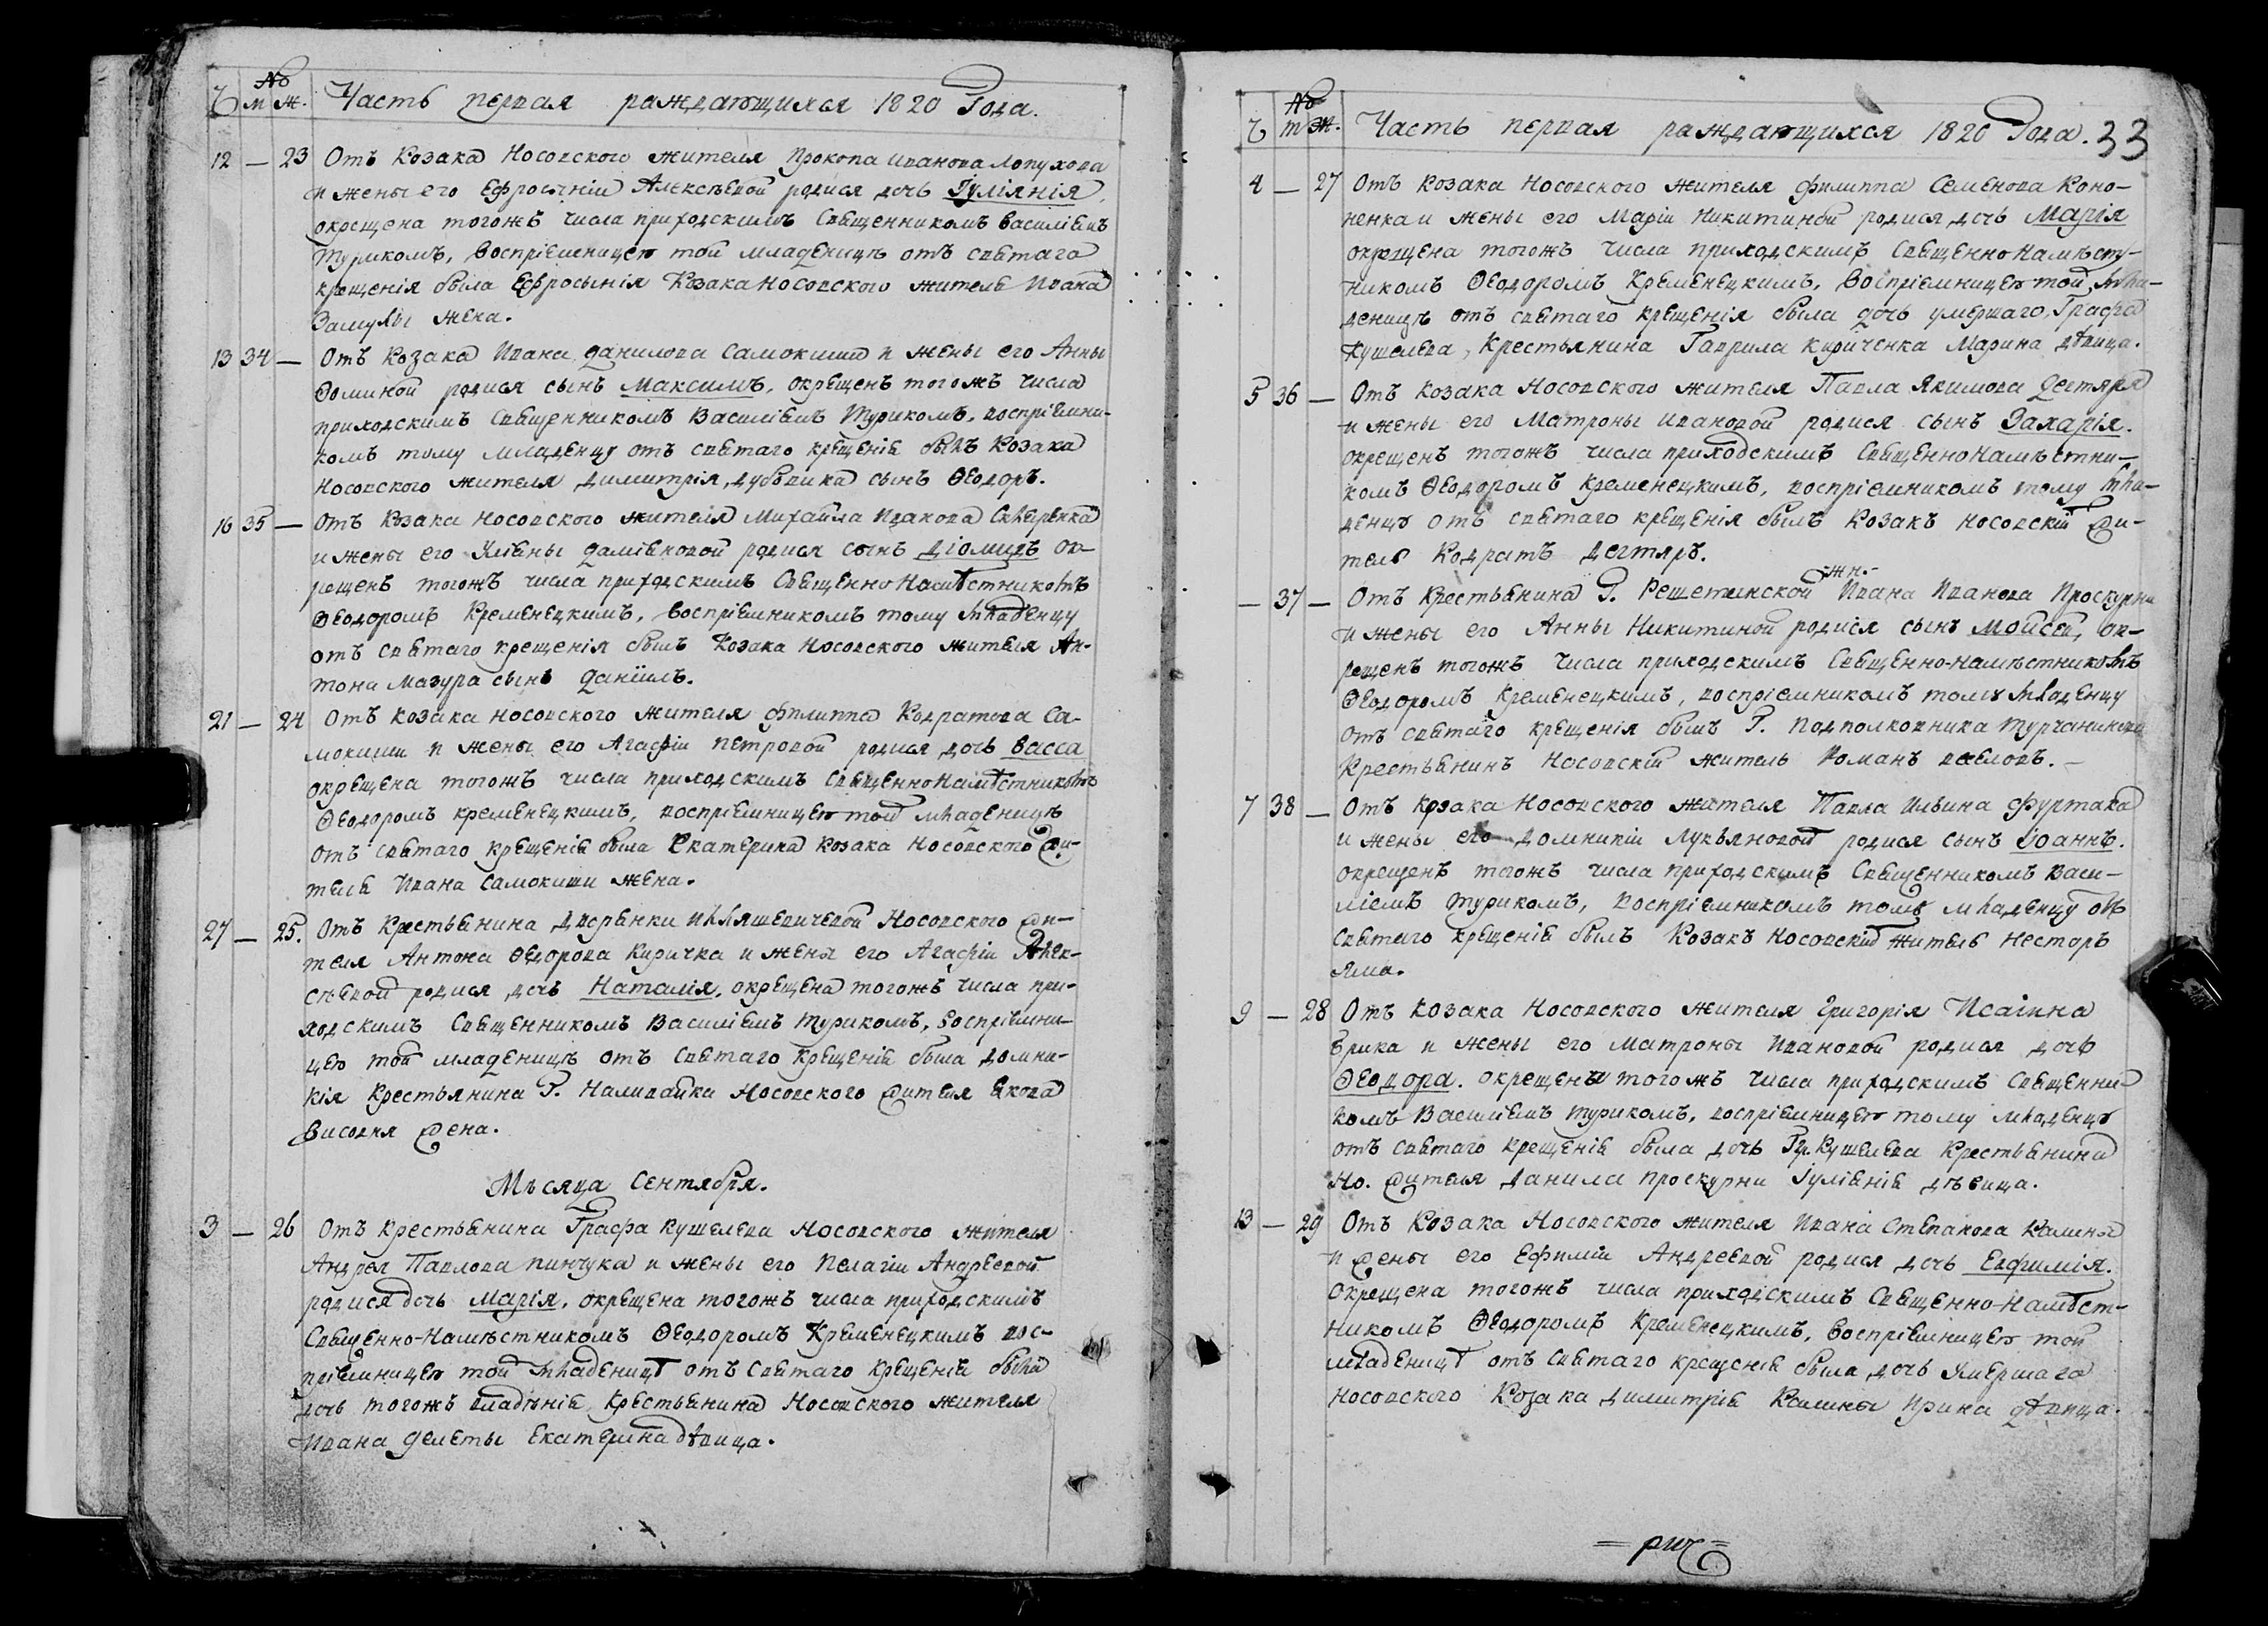 №
Ч м ж. Часть первая раждающихся 1820 Года.
12 — 23 Отъ Козака Носовского жителя Прокопа Иванова Лопухова
и жены его Ефросиніи Алексѣевой родися дочь Іуліянія,
окрещена тогожъ числа приходскимъ Священникомъ Василіемъ
Турикомъ, воспріемницею той младеницѣ отъ святаго
крещенія была Ефросынія Козака Носовского жителя Ивана
жена.
13 34 — Отъ Козака Ивана Данилова Самокиши и жены его Анны
Ѳоминой родися сынъ Максимъ, окрещенъ тогожъ числа
приходскимъ Священникомъ Василіемъ Турикомъ, воспріемни-
комъ тому младенцу отъ святаго крещенія былъ Козака
Носовского жителя Димитрія Дубовика сынъ Ѳеодоръ.
16 35 — Отъ Козака Носовского жителя Михайла Ивакова
и жены его Уліяны Даміяновой родися сынъ Діомидъ ок-
рещенъ тогожъ числа приходскимъ СвященноНамѣстникомъ
Ѳеодоромъ Кременецкимъ, воспріемникомъ тому младенцу
отъ святаго крещенія былъ Козака Носовского жителя Ан-
тона Мазура сынъ Даніилъ.
21 — 24 Отъ Козака Носовского жителя Филиппа Кодратова Са-
мокиши и жены его Агафіи Петровой родися дочь Васса
окрещена тогожъ числа приходскимъ СвященноНамѣстникомъ
Ѳеодоромъ Кременецкимъ, воспріемницею той младеницѣ
отъ святаго крещенія была Екатерина Козака Носовского жи-
теля Ивана Самокиши жена.
27 — 25. Отъ Крестьянина Дворянки Носовского жи-
теля Антона Ѳедорова Киричка и жены его Агафіи Алек-
сѣевой родися дочь Наталія, окрещена тогожъ числа при-
ходскимъ Священникомъ Василіемъ Турикомъ, воспріемни-
цею той младеницѣ отъ святаго крещенія была Домни-
кія Крестьянина Г. Наливайка Носовского жителя Якова
жена.
Мѣсяца Сентября.
3 — 26 Отъ Крестьянина Графа Кушелева Носовского жителя
Андрея Павлова Пинчука и жены его Пелагіи Андреевой
родися дочь Марія, окрещена тогожъ числа приходскимъ
Священно-Намѣстникомъ Ѳеодоромъ Кременецкимъ вос-
пріемницею той младеницѣ отъ святаго крещенія была
дочь тогожъ владѣнія Крестьянина Носовского жителя
Ивана Делеты Екатерина дѣвица.
№
Ч м ж. Часть первая раждающихся 1820 Года. 33
4 — 27 Отъ Козака Носовского жителя Филиппа Семенова Коно-
ненка и жены его Маріи Никитиной родися дочь Марія
окрещена тогожъ числа приходскимъ СвященноНамѣст-
никомъ Ѳеодоромъ Кременецкимъ, воспріемницею той мла-
деницѣ отъ святаго крещенія была дочь умершаго Графа
Кушелева, Крестьянина Гаврила Кириченка Марина дѣвица.
5 36 — Отъ Козака Носовского жителя Павла Якимова Дегтяря
и жены его Матроны Ивановой родися сынъ Захарія.
окрещенъ тогожъ числа приходскимъ СвященноНамѣстни-
комъ Ѳеодоромъ Кременецкимъ, воспріемникомъ тому мла-
денцу отъ святаго крещенія былъ Козакъ Носовскій жи-
тель Кодратъ Дегтярь.
— 37 — Отъ Крестьянина Г. Решетинской жи. Ивана Иванова Проскурни
и жены его Анны Никитиной родися сынъ Мойсей, ок-
рещенъ тогожъ числа приходскимъ Священно-намѣстникомъ
Ѳеодоромъ Кременецкимъ, воспріемникомъ тому младенцу
отъ святаго крещенія былъ Г. Подполковника Турчанинова
Крестьянинъ Носовскій житель Романъ Павловъ. —
7 38 — Отъ Козака Носовского жителя Павла Ильина Фуртака
и жены его Домникіи Лукьяновой родися сынъ Іоаннъ.
окрещенъ тогожъ числа приходскимъ Священникомъ Васи-
ліемъ Турикомъ, воспріемникомъ тому младенцу отъ
святаго крещенія былъ Козакъ Носовскій житель Несторъ
Яма.
9 — 28 Отъ Козака Носовского жителя Григорія Исаіина
и жены его Матроны Ивановой родися дочь
Ѳеодора. окрещены тогожъ числа приходскимъ Священни-
комъ Василіемъ Турикомъ, воспріемницею тому младенцу
отъ святаго крещенія была дочь Гр. Кушелева Крестьянина
Но. жителя Данила Проскурни Іуліянія дѣвица.
13 — 29 Отъ Козака Носовского жителя Ивана Степанова Калины
и жены его Ефиміи Андреевой родися дочь Евфимія.
Окрещена тогожъ числа приходскимъ Священно-Намѣст-
никомъ Ѳеодоромъ Кременецкимъ, воспріемницею той
младеницѣ отъ святаго крещенія была дочь умершаго
Носовского Козака Димитрія Калины Ирина дѣвица.